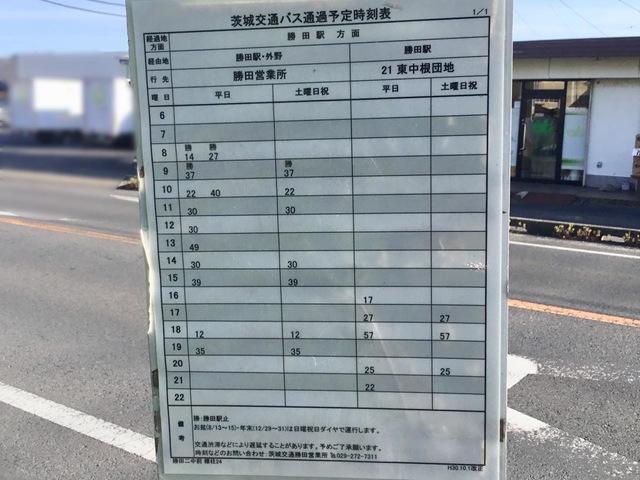 茨城交通バス通過予定時刻表 1／1
経過地方面 勝田駅 方面
経由地 勝田駅・外野 勝田駅
行先 勝田営業所 21 東中根団地
曜日 平日 土曜日祝 平日 土曜日祝
6
7
8 勝14 勝27
9 勝37 勝37
10 22 40 22
11 30 30
12 30
13 49
14 30 30
15 39 39
16 17
17 27 27
18 12 12 57 57
19 35 35
20 25 25
21 22
22
備考
勝:勝田駅止
お盆(8/13〜15)・年末(12/29〜31)は日曜祝日ダイヤで運行します。
交通渋滞などにより遅延することがあります。予めご了承願います。
時刻などのお問い合わせ:茨城交通勝田営業所 ℡029-272-7311
勝田二中前 標柱24 H30.10.1改正